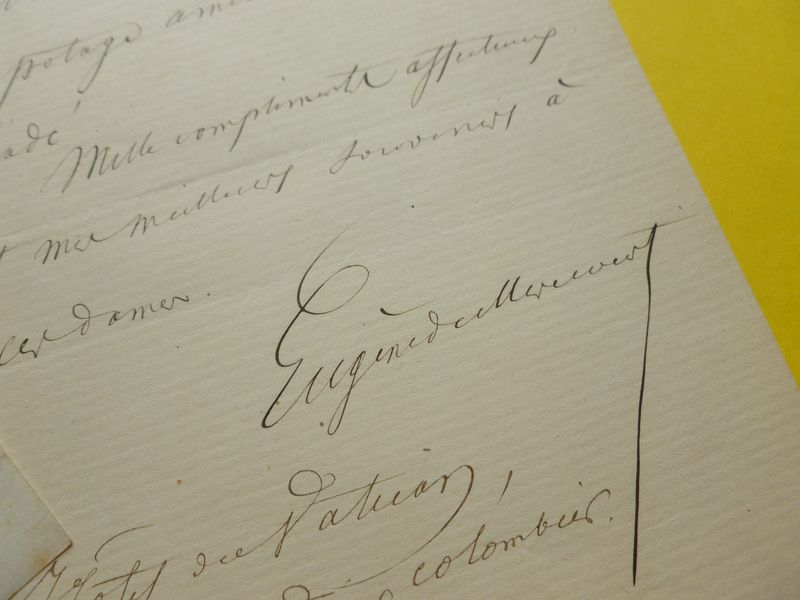 potage
Mille compliments affectueux
mes meilleurs souvenirs à
ces dames.
Eugène de Mirecourt
Hôtel du Vatican,
colombier.